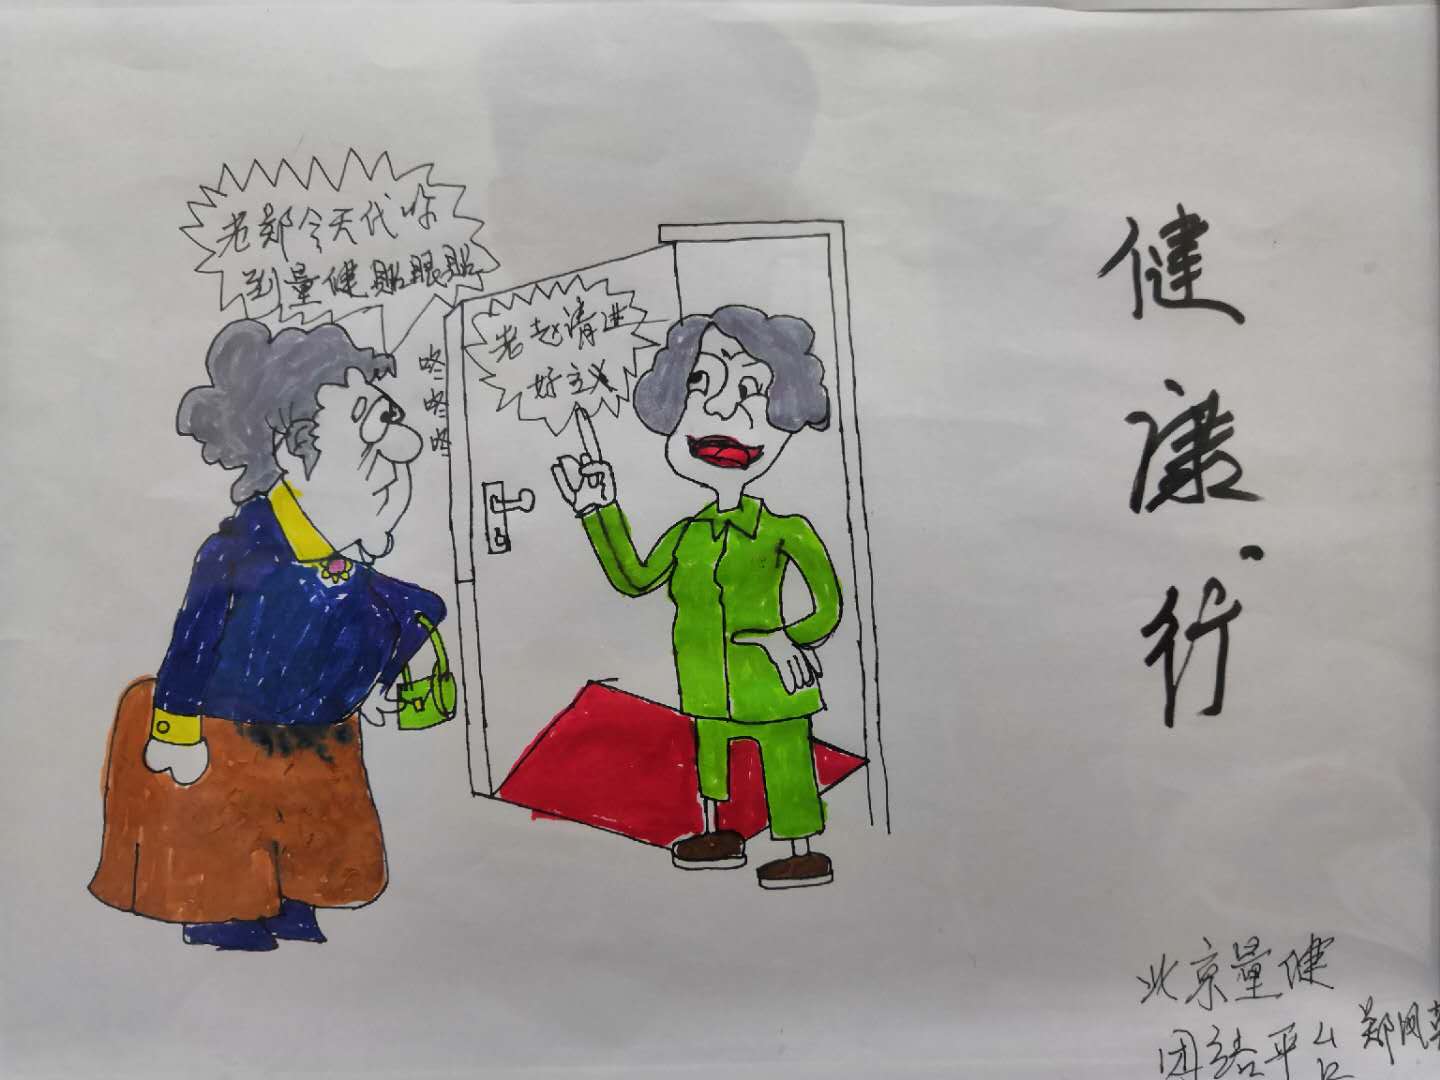 老郑今天代你
到量健贴眼贴
咚咚咚
老赵请进
好主义
健康行
北京量健
团结平台
郑凤